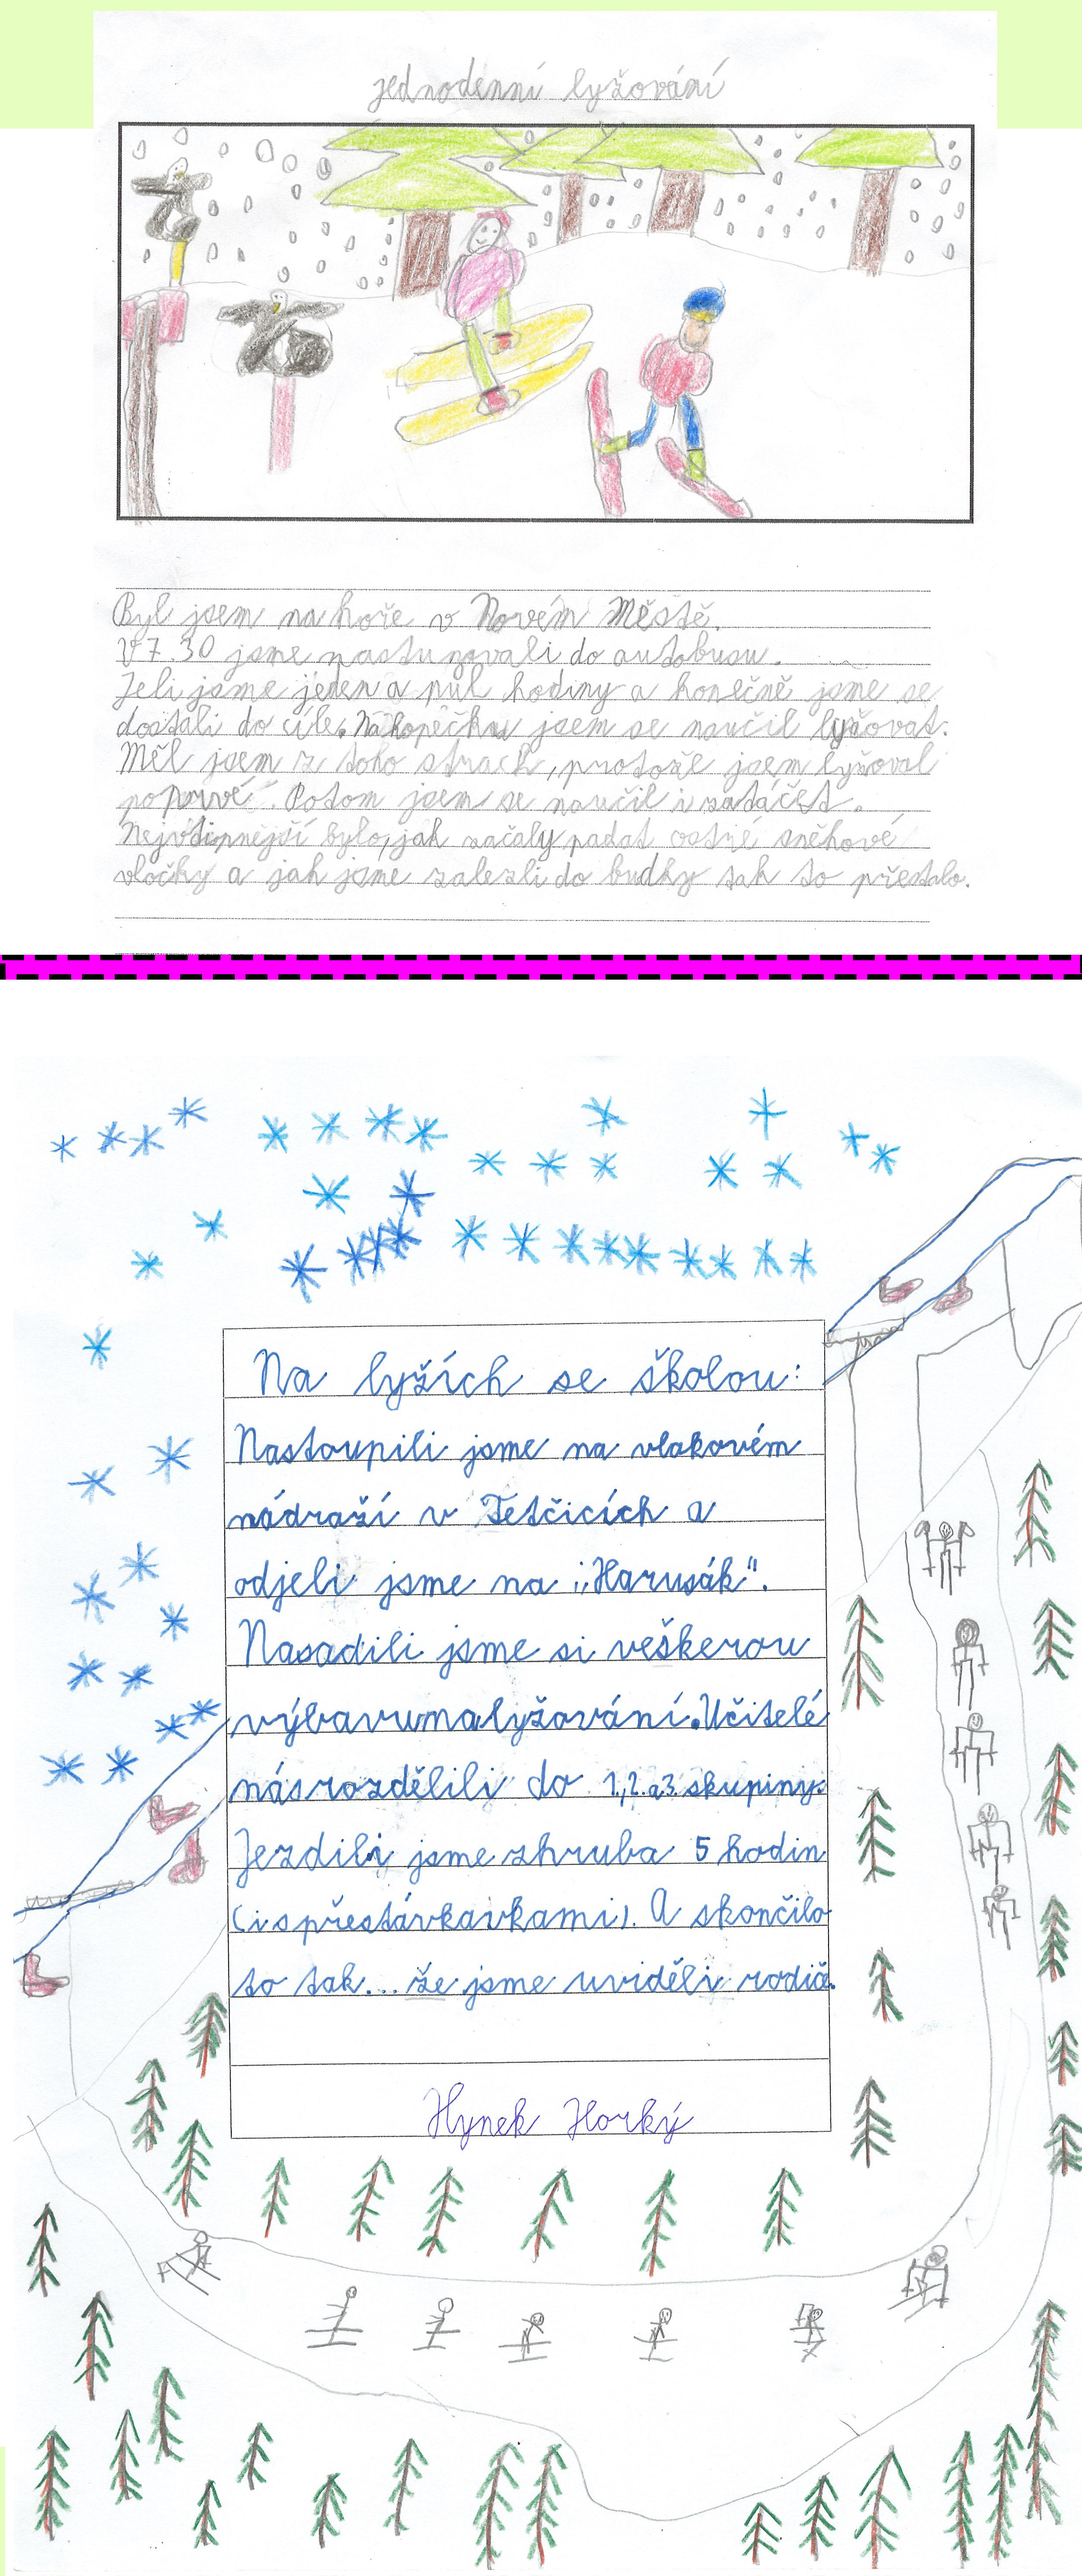 jednodenní lyžování
Byl jsem na hoře v Novém Městě.
V 7.30 jsme nastupovali do autobusu.
Jeli jsme jeden a půl hodiny a konečně jsme se
dostali do cíle. Na kopečku jsem se naučil lyžovat.
Měl jsem z toho strach, protože jsem lyžoval
poprvé. Potom jsem se naučil i zatáčet.
Nejvtipnější bylo, jak začaly padat ostré sněhové
vločky a jak jsme zalezli do budky tak to přestalo.
Na lyžích se školou:
Nastoupili jsme na vlakovém
nádraží v Tetčicích a
odjeli jsme na „Harusák".
Nasadili jsme si veškerou
výbavu na lyžování. Učitelé
nás rozdělili do 1., 2. a 3. skupiny.
Jezdili jsme zhruba 5 hodin
(i s přestávkavkami). A skončilo
to tak... že jsme uviděli rodiče.
Hynek Horký